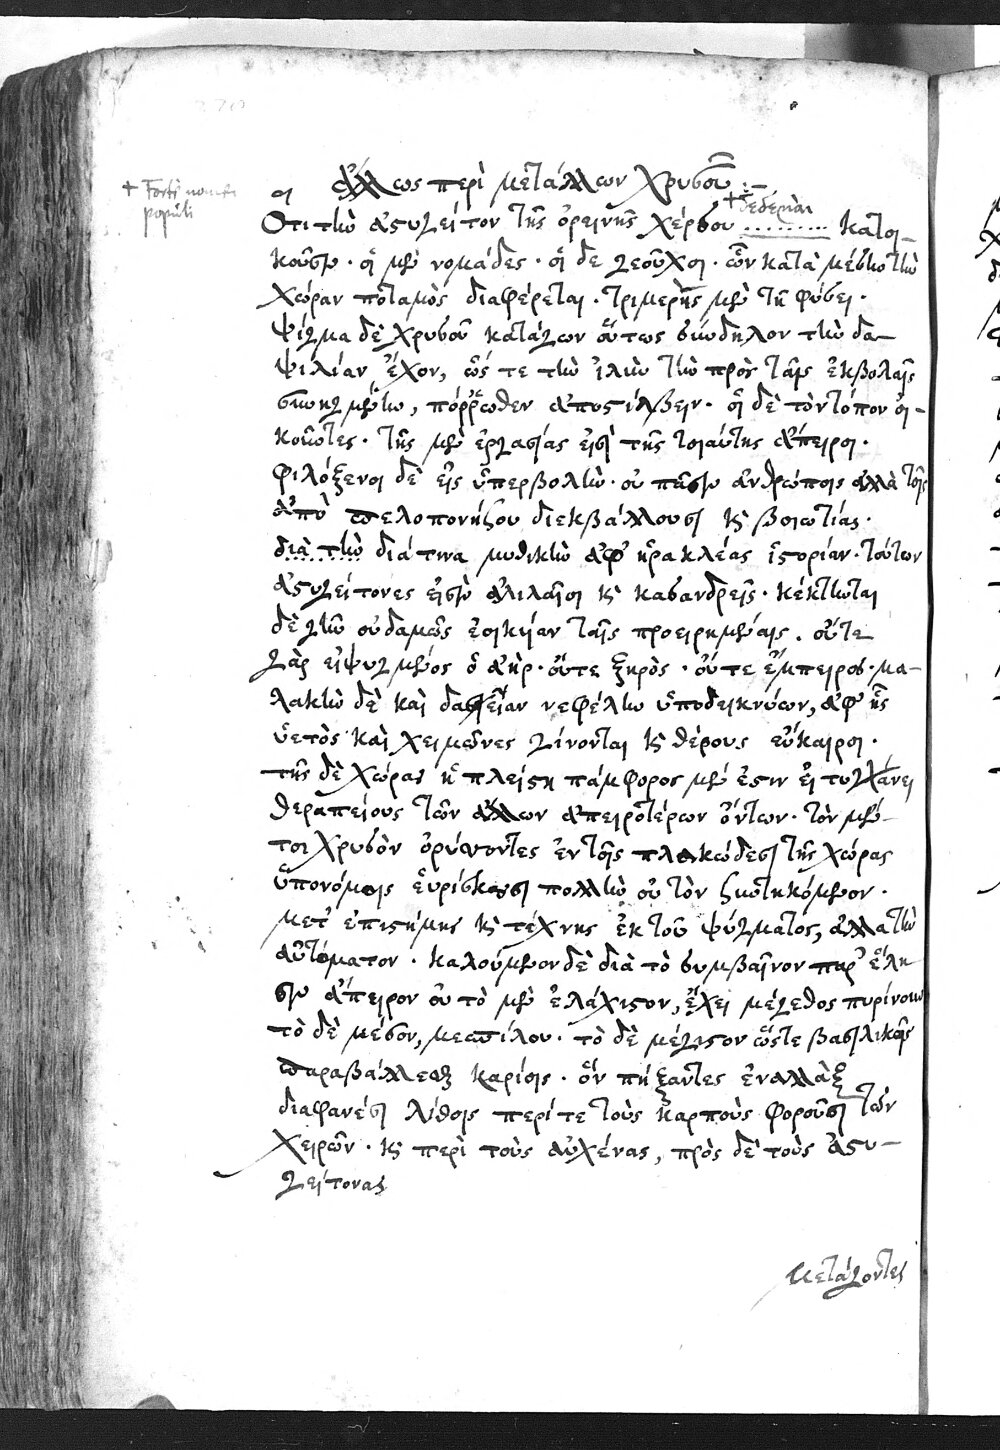 + Forte nomen
populi
Ἄλλως περὶ μετάλλων χρυσοῦ :–
Ὅτι τὴν ἀστυγείτον τῆς ὀρεινῆς χέρσου ......... κατοι-
+ δεδέβαι
κοῦσιν · οἱ μὲν νομάδες · οἱ δὲ γεοῦχοι · ὧν κατὰ μέσην τὴν
χώραν ποταμὸς διαφέρεται · τριμερὴς μὲν τῇ φύσει ·
ψῆγμα δὲ χρυσοῦ κατάγων οὕτως σύνδηλον τὴν δα-
ψιλίαν ἔχον, ὥς τε τὴν ἰλὺν τὴν πρὸς ταῖς ἐκβολαῖς
συνηγμένην, πόρρωθεν ἀποστίλβειν · οἱ δὲ τὸν τόπον οἰ-
κοῦντες · τῆς μὲν ἐργασίας εἰσὶ τῆς τοιαύτης ἄπειροι ·
φιλόξενοι δὲ εἰς ὑπερβολὴν · οὐ πᾶσιν ἀνθρώποις ἀλλὰ τοῖς
ἀπὸ πελοπονήσου διεκβάλλουσι καὶ βοιωτίας ·
διὰ τὴν διά τινα μυθικὴν ἀφ' ἡρακλέας ἱστορίαν · τούτων
ἀστυγείτονες εἰσὶν ἀλιλαῖοι καὶ κασανδρεῖς · κέκτηνται
δὲ γῆν οὐδαμῶς ἐοικυῖαν ταῖς προειρημέναις · οὔτε
γὰρ εἰψυγμένος ὁ ἀὴρ · οὔτε ξηρὸς · οὔτε ἔμπειρος · μα-
λακὴν δὲ καὶ δασεῖαν νεφέλην ὑποδεικνύων, ἀφ' ἧς
ὑετὸς καὶ χειμῶνες γίνονται καὶ θέρους εὔκαιροι ·
τῆς δὲ χώρας ἡ πλείστη πάμφορος μέν ἐστιν εἰ τυγχάνει
θεραπείους τῶν ἄλλων ἀπειροτέρων ὄντων · τὸν μέν-
τοι χρυσὸν ὀρύττοντες ἐν τοῖς πλακώδεσι τῆς χώρας
ὑπονόμοις εὑρίσκουσι πολλὴν οὐ τὸν ζητηκόμενον ·
μετ' ἐπιστήμης καὶ τέχνης ἐκ τοῦ ψύγματος, ἀλλὰ τὴν
αὐτόματον · καλούμενον δὲ διὰ τὸ συμβαῖνον παρ' ἕλη-
σιν ἄπειρον οὗ τὸ μὲν ἐλάχιστον, ἔχει μέγεθος πυρίνου
τὸ δὲ μέσον, μεσπίλου · τὸ δὲ μέγιστον ὥστε βασιλικοῖς
παραβάλλεσθαι καρύοις · ὃν πήξαντες ἐναλλὰξ
διαφανέσι λίθοις περί τε τοὺς καρποὺς φοροῦσι τῶν
χειρῶν · καὶ περὶ τοὺς αὐχένας, πρὸς δὲ τοὺς ἀστυ-
γείτονας
μετάγοντες